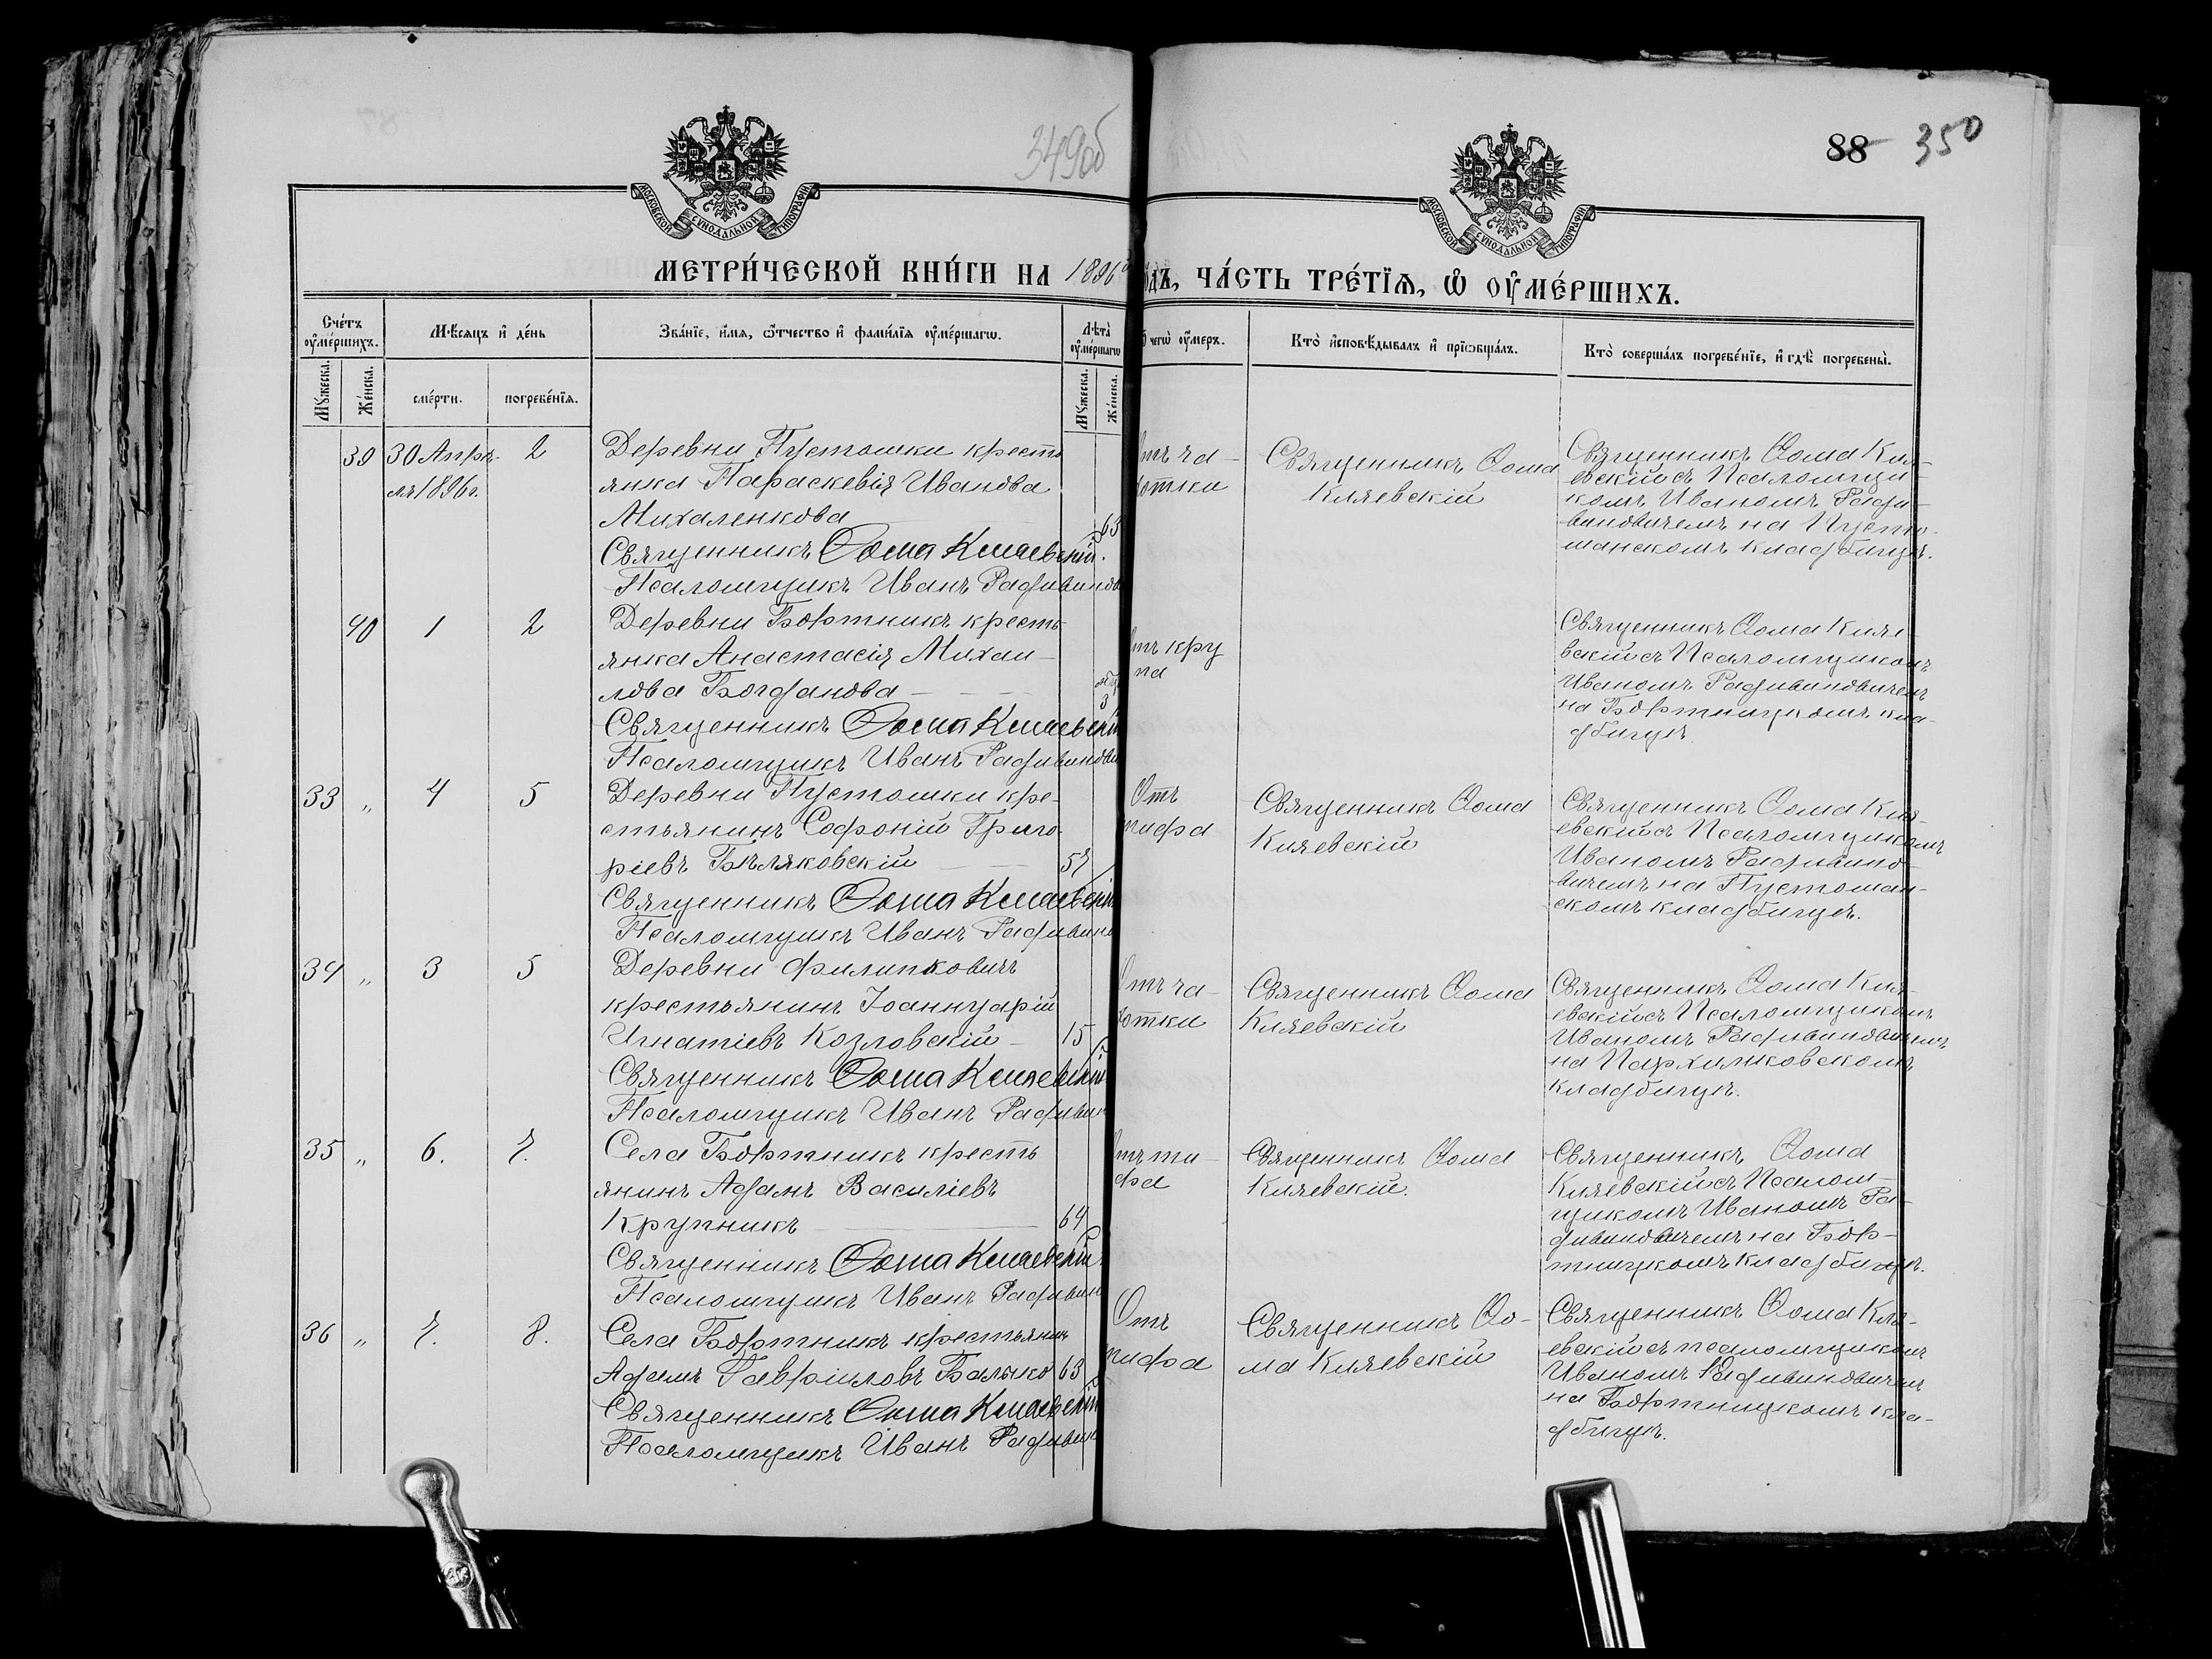 349об
88 350
МОСКОВСКОЙ СУНОДАЛЬНОЙ ТИПОГРАФІИ
МОСКОВСКОЙ СУНОДАЛЬНОЙ ТИПОГРАФІИ
МЕТРИ́ЧЕСКОЙ КНИ́ГИ НА 1896 г
одъ, ЧА́СТЬ ТРЕ́ТЇѦ, Ѽ ОУ҆МЕ́РШИХЪ.
Сче́тъ оу҆ме́ршихъ.
Мѣ́сяцъ и҆ де́нь
Зва́нїе, и҆́мѧ, ѻ҆́тчество и҆ фами́лїѧ оу҆ме́ршагѡ.
Лѣ́та оу҆ме́ршагѡ
чегѡ̀ оу҆́меръ.
Кто̀ и҆сповѣ́дывалъ и҆ прїѡбща́лъ.
Кто̀ соверша́лъ погребе́нїе, и҆ гдѣ̀ погребены̀.
Мꙋ́жеска.
Же́нска.
сме́рти.
погребе́нїѧ.
Мꙋ́жеска.
Же́нска.
39 30 Апрѣ- 2 Деревни Пустошки кресть
ля 1896 г. янка Параскевія Иванова
Михаленкова 63
Священникъ Ѳома Кляевскій.
Псаломщикъ Иванъ Радивинов
тъ ча-
хотки
Священникъ Ѳома
Кляевскій
Священникъ Ѳома Кля-
евскій съ Псаломщи-
комъ Иваномъ Ради-
виновичемъ на Пусто-
шанскомъ кладбищѣ.
40 1 2 Деревни Бортникъ кресть
янка Анастасія Михаи-
лова Богданова 3
Священникъ Ѳома Кляевскій
Псаломщикъ Иванъ Радивинови
тъ кру
па
Священникъ Ѳома Кляе-
вскій съ Псаломщикомъ
Иваномъ Радивиновичемъ
на Бортницкомъ кла-
дбищѣ
33 „ 4 5 Деревни Пустошки кре-
стьянинъ Софоній Григо-
ріевъ Бѣляковскій 57
Священникъ Ѳома Кляевскій
Псаломщикъ Иванъ Радивин
Отъ
тифа
Священникъ Ѳома
Кляевскій
Священникъ Ѳома Кля-
евскій съ Псаломщикомъ
Иваномъ Радивино-
вичемъ на Пустошан-
скомъ кладбищѣ.
34 „ 3 5 Деревни Филипковичъ
крестьянинъ Іоаннуарій
Игнатіевъ Козловскій 15
Священникъ Ѳома Кляевскій
Псаломщикъ Иванъ Радивин
Отъ ча-
хотки
Священникъ Ѳома
Кляевскій
Священникъ Ѳома Кля-
евскій съ Псаломщикомъ
Иваномъ Радивиновичемъ
на Пархимковскомъ
кладбищѣ.
35 „ 6. 7. Села Бортникъ кресть
янинъ Адамъ Василіевъ
Крупникъ 64
Священникъ Ѳома Кляевскій
Псаломщикъ Иванъ Радивин
тъ ти-
фа
Священникъ Ѳома
Кляевскій.
Священникъ Ѳома
Кляевскій съ Псалом-
щикомъ Иваномъ Ра-
дивиновичемъ на Бор-
тницкомъ кладбищѣ.
36 „ 7. 8. Села Бортникъ крестьянинъ
Адамъ Гавріиловъ Балыко 63
Священникъ Ѳома Кляевскій
Псаломщикъ Иванъ Радивин
Отъ
тифа
Священникъ Ѳо-
ма Кляевскій
Священникъ Ѳома Кля-
евскій съ псаломщикомъ
Иваномъ Радивиновичемъ
на Бортницкомъ кла-
дбищѣ.